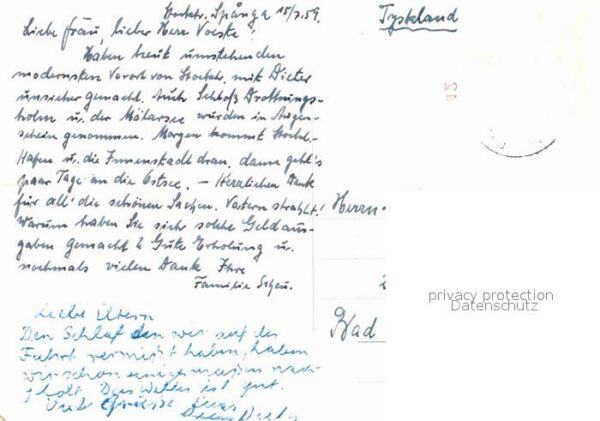 Stockh. Spånga 15/7.59.
Liebe Frau, lieber Herr Voeste!
Haben heut umstehenden
modernsten Vorort von Stockh. mit Dieter
unsicher gemacht. Auch Schloß Drottnings-
holm u. der Mälarsee wurden in Augen-
schein genommen. Morgen kommt Stockh.-
Hafen u. die Innenstadt dran, dann geht's
paar Tage an die Ostsee. – Herzlichen Dank
für all' die schönen Sachen. Vatern strahlt!
Warum haben Sie sich solche Geldaus-
gaben gemacht? Gute Erholung u.
nochmals vielen Dank Ihre
Familie Scheu.
Liebe Eltern
Den Schlaf den wir auf der
Fahrt vermißt haben, haben
wir schon einigermaßen nach
geholt. Das Wetter ist gut.
Viele Grüsse Euer
Tyskland
Herrn
Bad
privacy protection
Datenschutz